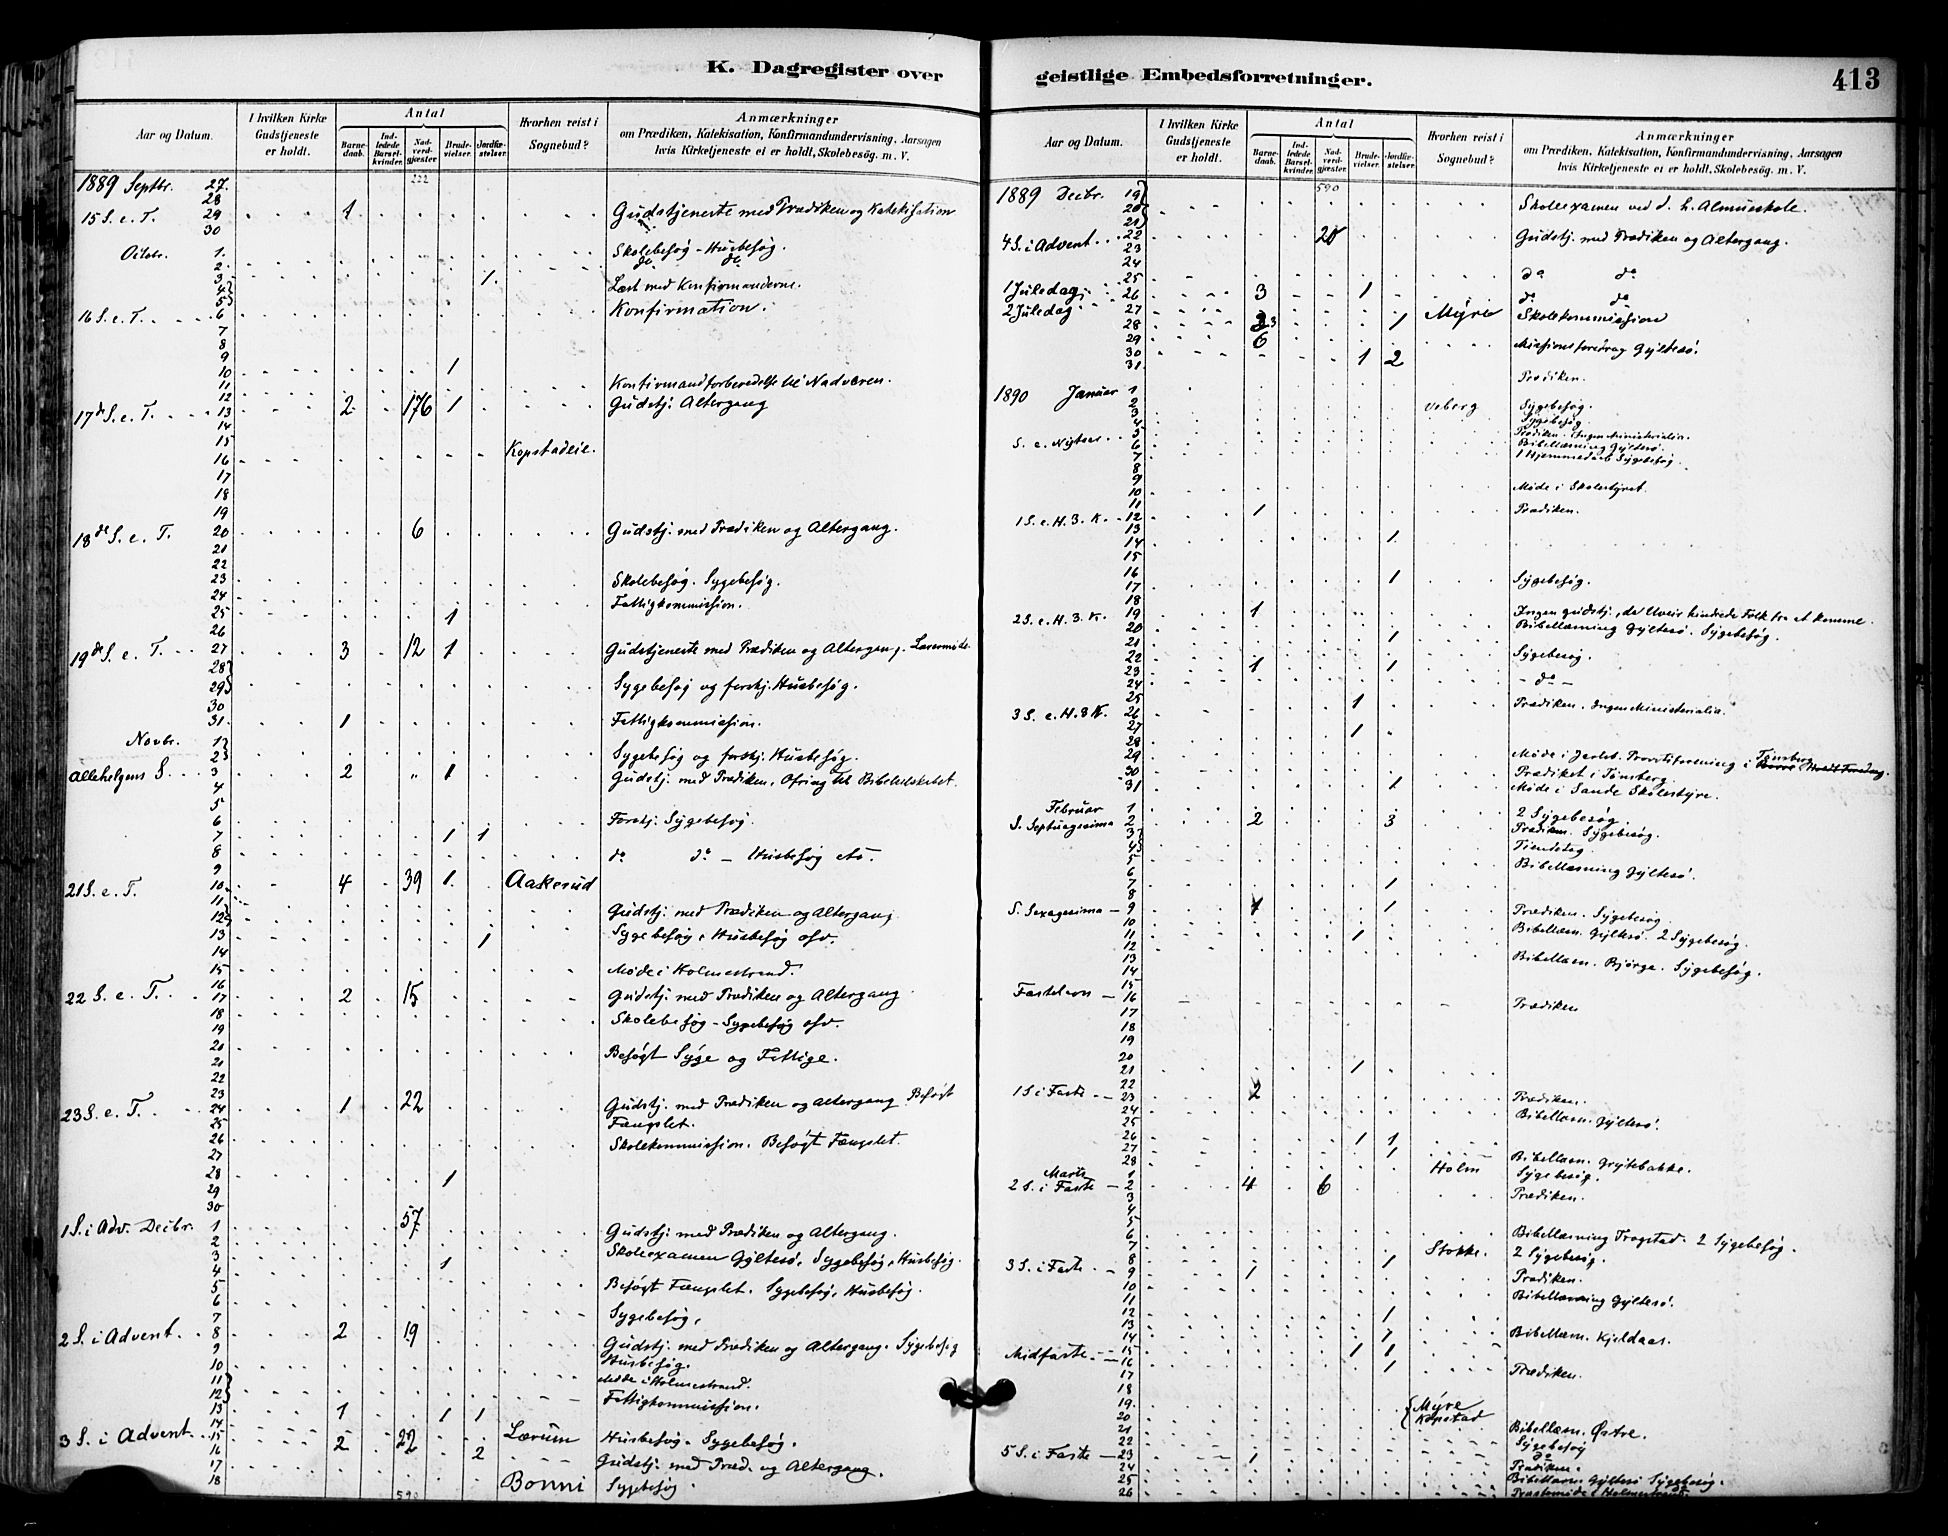 K. Dagregister over
Aar og Datum.
I hvilken Kirke Gudstjeneste er holdt.
Antal
Barnedaab.
Indledede Barselkvinder.
Nadverdgjæster.
Brudevielser.
Jordfæstelser.
Hvorhen reist i Sognebud?
Anmærkninger
om Prædiken, Katekisation, Konfirmandundervisning, Aarsagen
hvis Kirketjeneste ei er holdt, Skolebesög. m. V.
1889 Septbr. 27.
28
15 S. e. T. 29 1 Gudstjeneste med Prædiken og Katekisation
30
Octobr. 1. Skolebesøg - Husbesøg.
2. do do
3 1.
4
5 Læst med Konfirmanderne.
16 S. e. T. 6 Konfirmation.
7
8
9
10 1
11
12 Konfirmandforberedelse til Nadveren.
17de S. e. T. 13 2 176 1 Gudstj. Altergang
14
15
16 Kopstadeie.
17
18
19
18de S. e. T. 20 6 Gudstj. med Prædiken og Altergang.
21
22
23 Skolebesøg. Sygebesøg.
24 Fattigkommission.
25 1
26
19de S. e. T. 27 3 12 1 Gudstjeneste med Prædiken og Altergang. Lærermøde
28
29 Sygebesøg og forskj. Husbesøg.
30
31. 1 Fattigkommission.
Novbr. 1
2 Sygebesøg og forskj. Husbesøg.
Allehelgens S. 3 2 " 1 Gudstj. med Prædiken, Ofring til Bibelselskabet.
4
5
6 Forskj. Sygebesøg.
7 1 1
8 do do - Husbesøg etc.
9
21 S. e. T. 10 4 39 1. Aakerud
11 Gudstj. med Prædiken og Altergang
12
13 1 Sygebesøg, Husbesøg osv.
14
15 Møde i Holmestrand.
16
22 S. e. T. 17 2 15 Gudstj. med Prædiken og Altergang
18 Skolebesøg - Sygebesøg osv.
19
20 Besøgt Syge og Fattige.
21
22
23
23 S. e. T. 24 1 22 Gudstj. med Prædiken og Altergang. Besøgt
25 Fængslet.
26 Skolekommission. Besøgt Fængslet.
27
28 1
29
30
1 S. i Adv. Decbr. 1 57 Gudstj. med Prædiken og Altergang.
2 Skoleexamen Gyltesø, Sygebesøg, Husbesøg.
3 1
4
5 Besøgt Fængslet. Sygebesøg, Husbesøg.
6
7 Sygebesøg,
2 S. i Advent 8 2 19 Gudstj. med Prædiken og Altergang. Sygebesøg
9 Husbesøg.
10
11 Møde i Holmestrand.
12 Fattigkommission.
13 1 1 1
14
3 S. i Advent 15 2 22 Lærum Husbesøg. Sygebesøg.
16 2 Gudstj. med Præd. og Altergang.
17
18 590 Bonni Sygebesøg.
geistlige Embedsforretninger.
413
Aar og Datum.
I hvilken Kirke Gudstjeneste er holdt.
Antal
Barnedaab.
Indledede Barselkvinder.
Nadverdgjæster.
Brudevielser.
Jordfæstelser.
Hvorhen reist i Sognebud?
Anmærkninger
om Prædiken, Katekisation, Konfirmandundervisning, Aarsagen
hvis Kirketjeneste ei er holdt, Skolebesög. m. V.
590
1889 Decbr. 19
20 Skoleexamen ved d. h. Almueskole.
21
4 S. i Advent 22 20 Gudstj. med Prædiken og Altergang.
23
24
1 Juledag 25 do do
26 3 1
2 Juledag 27 do do
28 1 Myre Skolekommission
29 6
30 1 2 Missionsforedrag Gyltesø.
31.
1890 Januar 1 Prædiken.
2 Sygebesøg.
3 Sygebesøg
4
S. e. Nytaar 5 Prædiken. Ingen Ministerialia.
6 Bibellæsning Gyltesø.
7 1 Hjemmedaab Sygebesøg.
8
9
10 Møde i Skolestyret.
11
1 S. e. H. 3. K. 12 1 Prædiken.
13
14 1
15
16 1 Sygebesøg.
17
18
2 S. e. H. 3. K. 19 1 Ingen gudstj., da Uveir hindrede Folk fra at komme.
20 Bibellæsning Gyltesø. Sygebesøg.
21 1
22 Sygebesøg.
23 1 1 - do -
24
25 1
3 S. e. H. 3 K. 26 Prædiken. Ingen Ministerialia.
27 1
28
29 Møde i Jarlsb. Provstiforening i Tønsberg
30 Prædiket i Tønsberg.
31 1 Møde i Sande Skolestyre.
Februar 1 2 Sygebesøg.
S. Septuagesima 2 2 3 Prædiken. Sygebesøg.
3
4 Tiendetag
5 Bibellæsning Gyltesø.
6
7 1
8
S. Sexagesima 9 1 1 Prædiken. Sygebesøg
10 Bibellæsn. Gyltesø. 2 Sygebesøg.
11 1
12
13 Bibellæsn. Bjørge. Sygebesøg.
14
15
Fastelavn 16 Prædiken
17
18
19
20
21 1
22
1 S. i Faste 23 2 Prædiken.
24 Bibellæsn. Gyltesø.
25
26 1 1
27 1
28 Bibellæsn. Grytebakke.
Marts 1 Holm Sygebesøg.
2 S. i Faste 2 4 6 Prædiken.
3
4
5
6 Bibellæsning Fragstad. 2 Sygebesøg.
7 Stokke. 2 Sygebesøg.
8 1
3 S. i Faste 9 1 Prædiken.
10
11 Bibellæsning Gyltesø.
12 1
13
14 Bibellæsn. Kjeldaas.
15 1 1
Midfaste 16 1 Prædiken.
17
18
19. Myre
20 Kopstad
21 Bibellæsn. Østre.
22 Sygebesøg
5 S. i Faste 23 1 do
24 Prædiken.
25 Bibellæsn. Gyltesø Sygebesøg.
26 Præstemøde i Holmestrand.